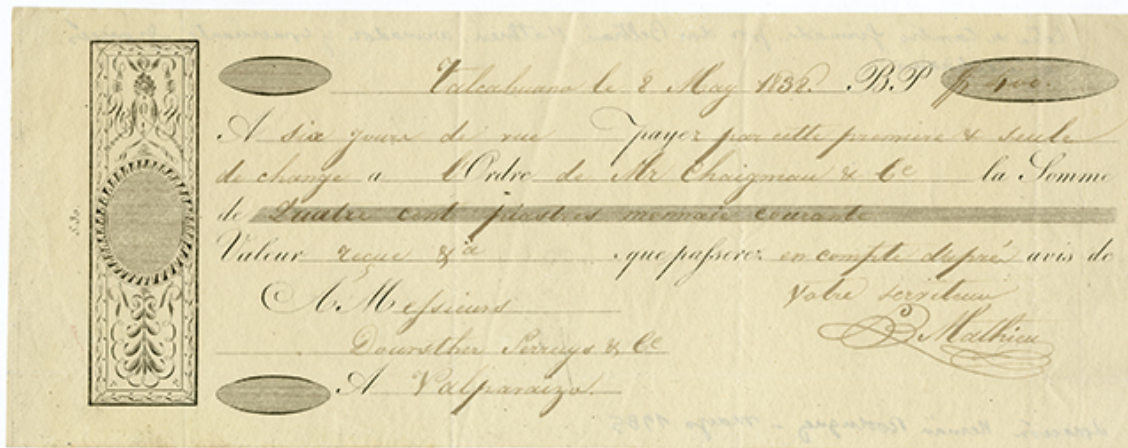 Valcahuano le 2 May 1832. B.P. $ 400.
A six jours de vue payez par cette premiere & seule
de change a l'Ordre de Mr Chaigneau & Ce la Somme
de Quatre cent piastres monnaie courante
Valeur reçue &a que passerez en compte d'après avis de
A Messieurs votre serviteur
B Mathieu
Doursther Serruys & Ce
A Valparaizo.